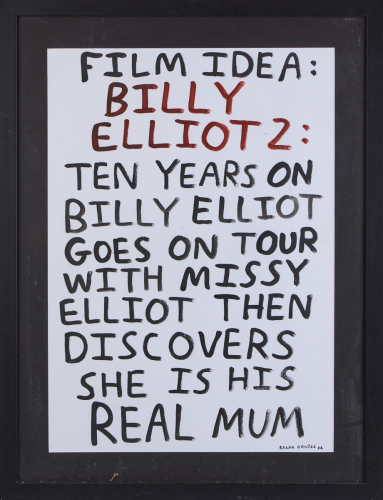 FILM IDEA:
BILLY
ELLIOT 2:
TEN YEARS ON
BILLY ELLIOT
GOES ON TOUR
WITH MISSY
ELLIOT THEN
DISCOVERS
SHE IS HIS
REAL MUM